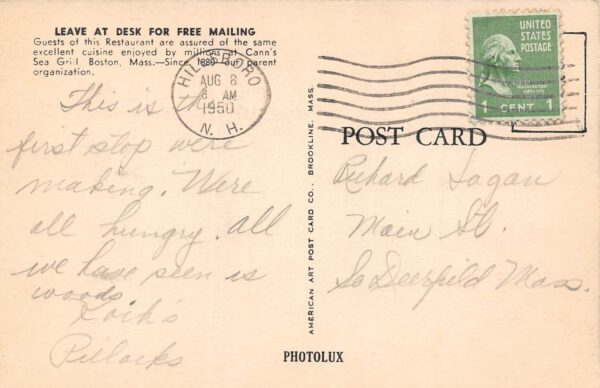 LEAVE AT DESK FOR FREE MAILING
Guests of this Restaurant are assured of the same
excellent cuisine enjoyed by millions at Cann's
Sea Grill, Boston, Mass.—Since 1880 our parent
organization.
HILLSBORO
AUG 8
8 AM
1950
N. H.
UNITED
STATES
POSTAGE
WASHINGTON
1 CENT 1
This is the
first stop were
making. Were
all hungry. all
we have seen is
woods
POST CARD
Richard
Main St.
So Deerfield Mass.
AMERICAN ART POST CARD CO., BROOKLINE, MASS.
PHOTOLUX